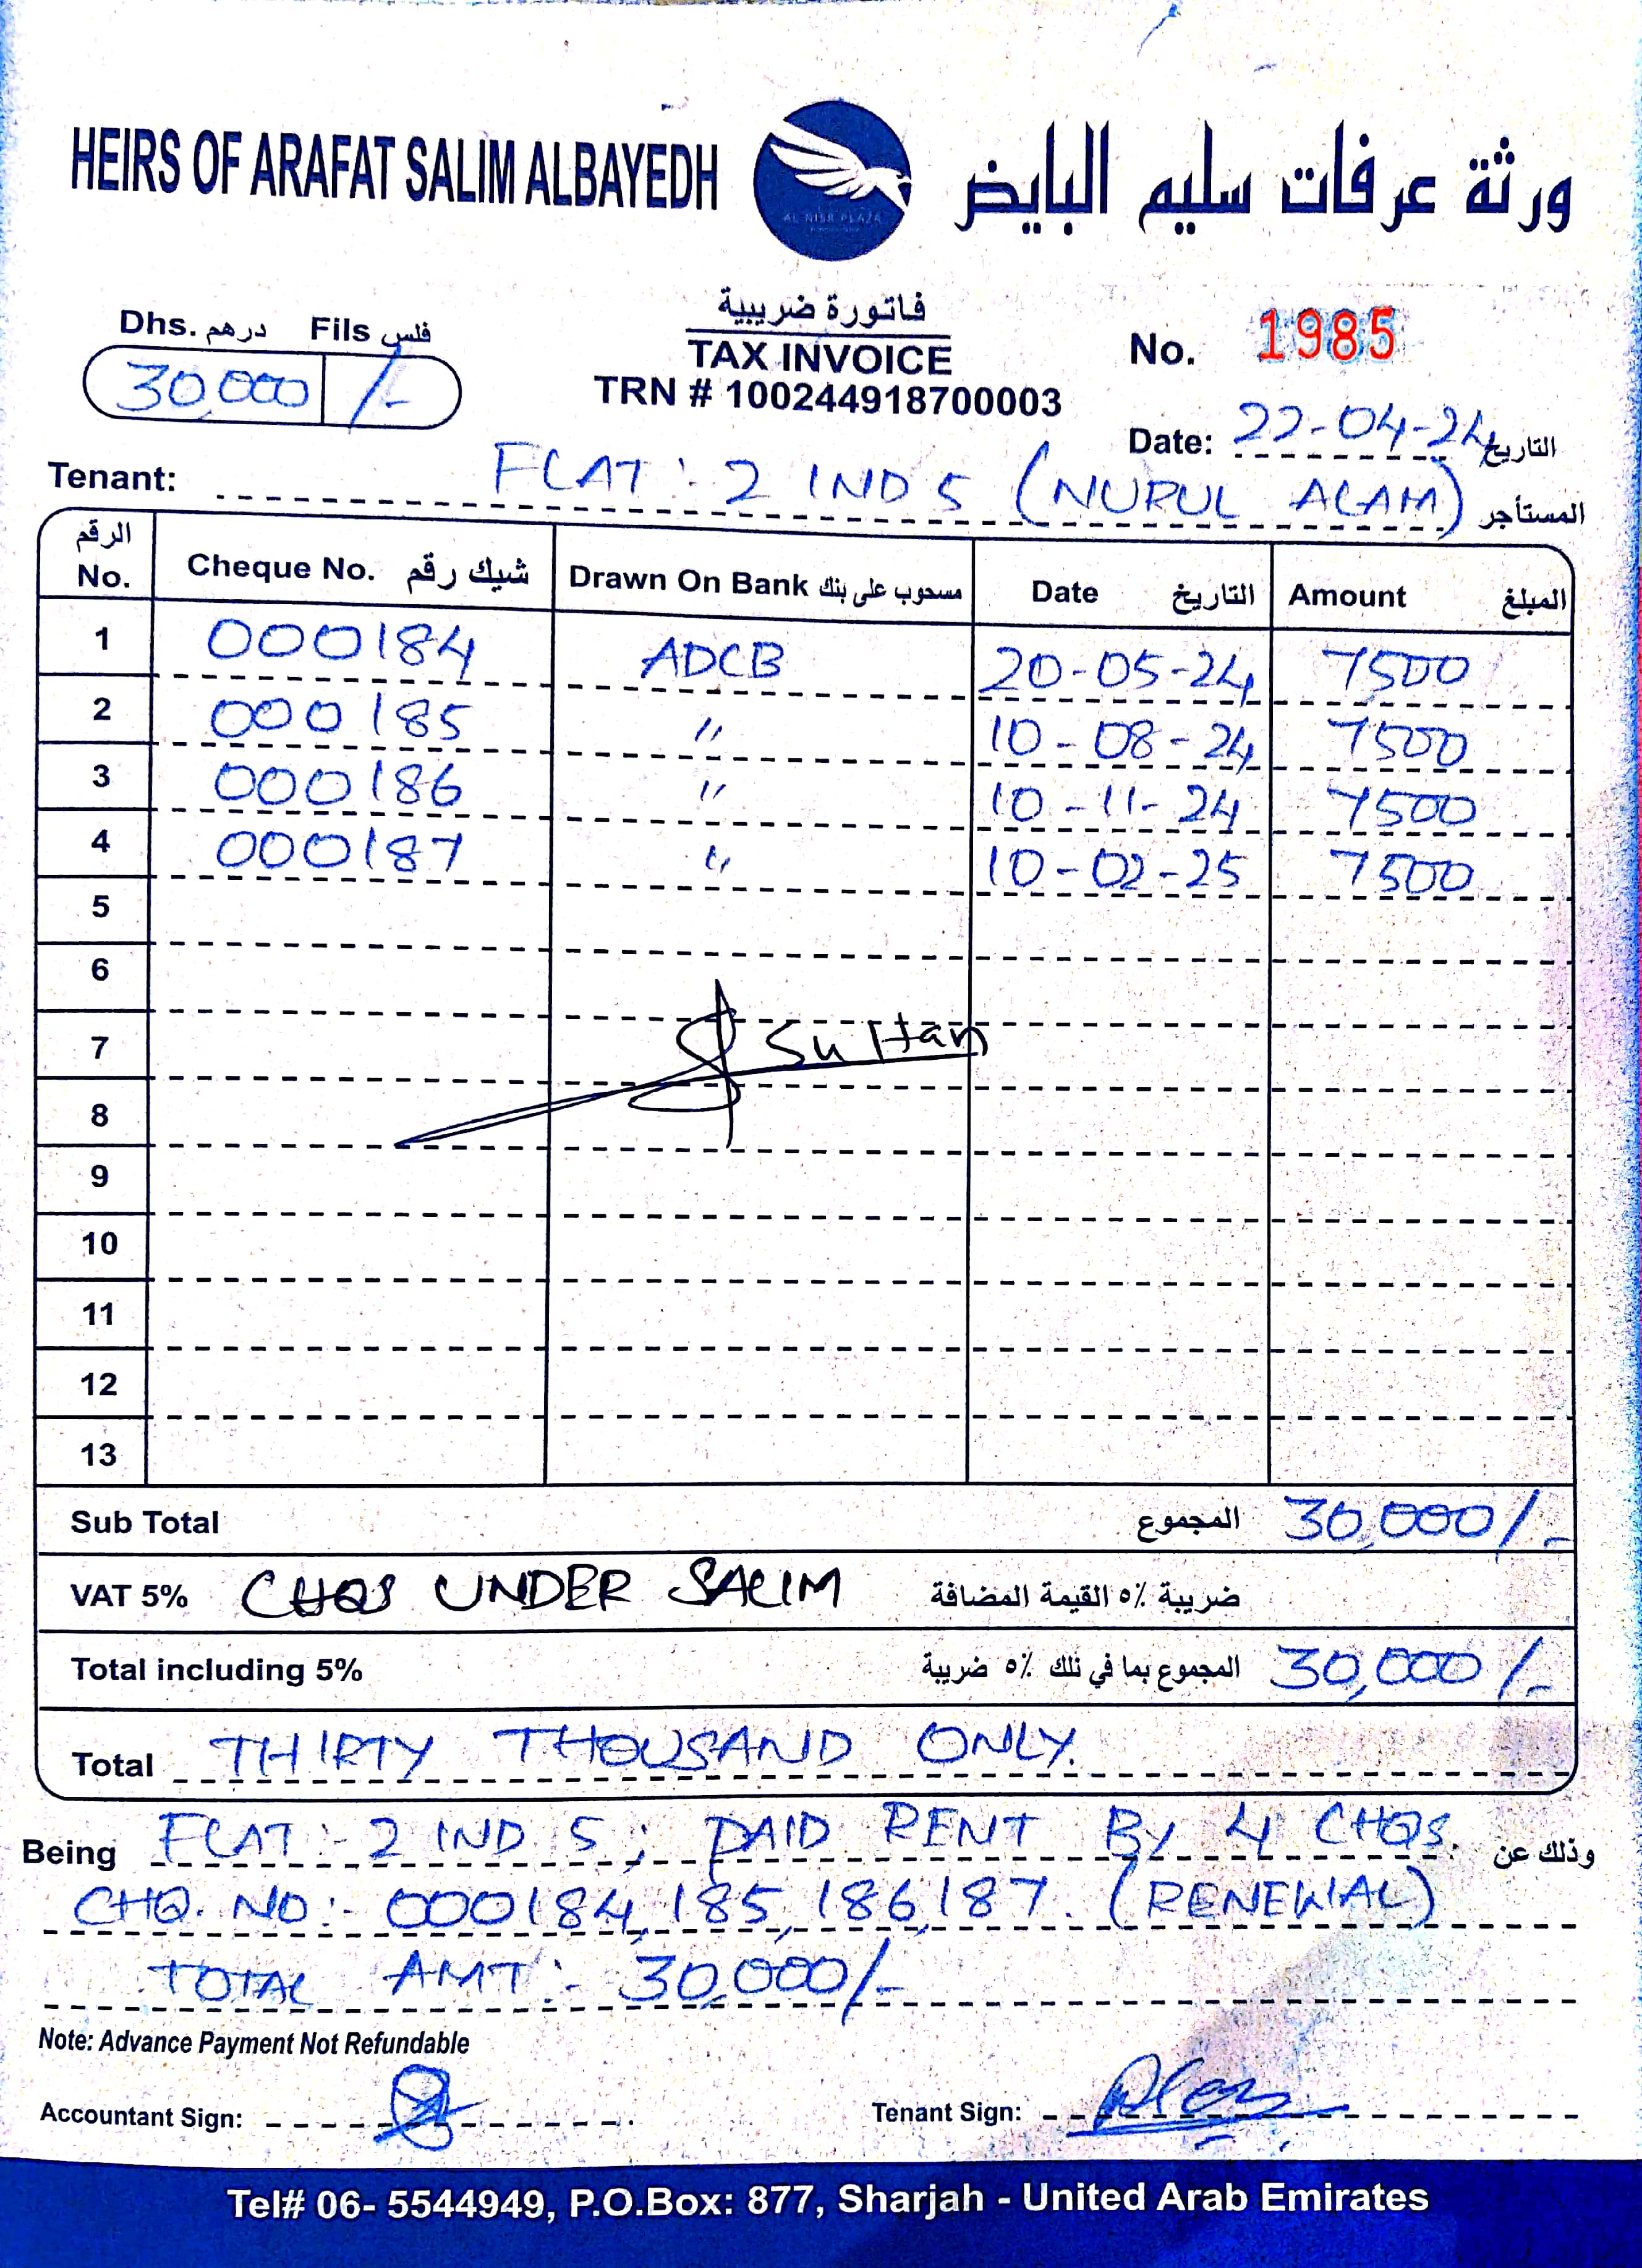 HEIRS OF ARAFAT SALIM ALBAYEDH ورثة عرفات سليم البايض
AL NISR PLAZA
Dhs. درهم Fils فلس
30,000 /-
فاتورة ضريبية
TAX INVOICE
TRN # 100244918700003
No. 1985
Date: 22-04-24 التاريخ
Tenant: FLAT : 2 IND 5 (NURUL ALAM) المستأجر
الرقم No. Cheque No. شيك رقم Drawn On Bank مسحوب على بنك Date التاريخ Amount المبلغ
1 000184 ADCB 20-05-24 7500
2 000185 " 10-08-24 7500
3 000186 " 10-11-24 7500
4 000187 " 10-02-25 7500
5
6
7 Sultan
8
9
10
11
12
13
Sub Total المجموع 30,000/-
VAT 5% CHQS UNDER SALIM ضريبة ٥٪ القيمة المضافة
Total including 5% المجموع بما في ذلك ٥٪ ضريبة 30,000/-
Total THIRTY THOUSAND ONLY.
Being FLAT :- 2 IND 5; PAID RENT By 4 CHQS. وذلك عن
CHQ. NO :- 000184, 185, 186, 187. (RENEWAL)
TOTAL AMT :- 30,000/-
Note: Advance Payment Not Refundable
Accountant Sign: Tenant Sign:
Tel# 06- 5544949, P.O.Box: 877, Sharjah - United Arab Emirates